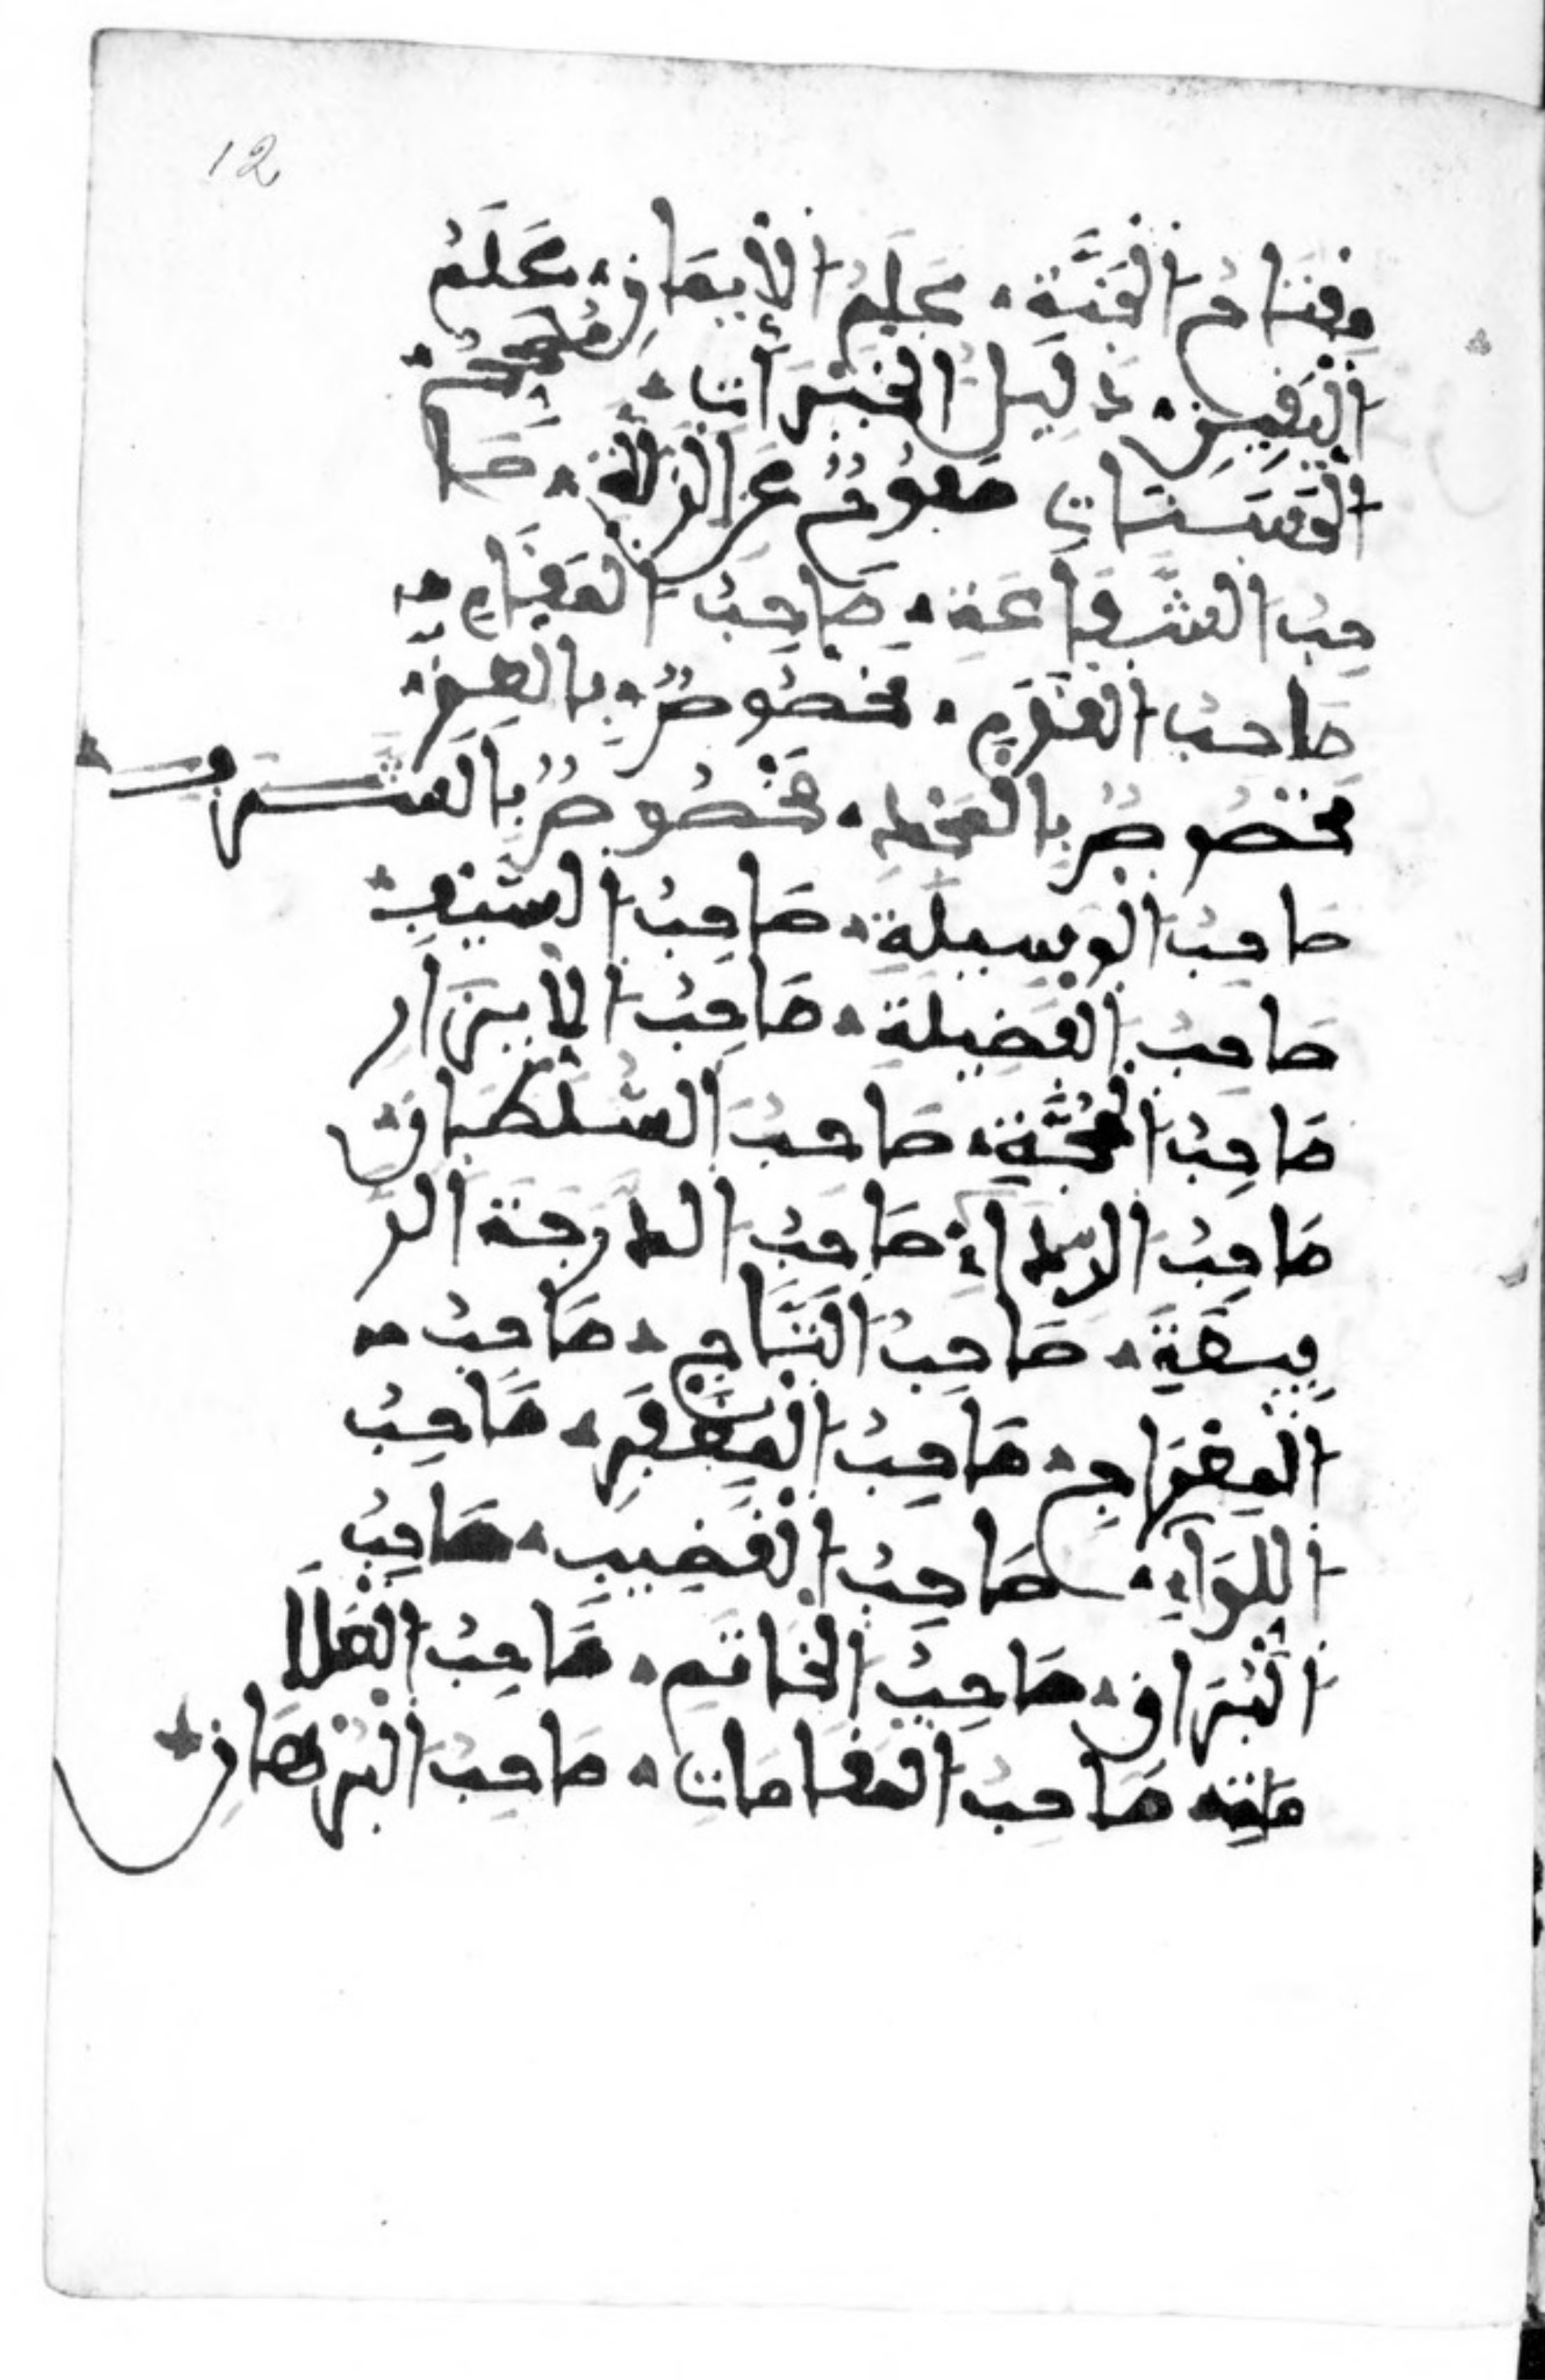 12
مِفتَاحُ الْجَنَّةِ ۰ عَلَمُ الْإِيمَانِ ۰ عَلَمُ
الْيَقِينِ ۰ دَلِيلُ الْخَيْرَاتِ ۰ مُصَحِّحُ
الْحَسَنَاتِ صَفُوحٌ عَنِ الزَّلَّةِ ۰ صَا
حِبُ الشَّفَاعَةِ ۰ صَاحِبُ الْمَقَامِ ۰
صَاحِبُ الْقَدَمِ ۰ مَخْصُوصٌ ۰ بِالْعِزِّ ۰
مَخْصُوصٌ بِالْمَجْدِ ۰ مَخْصُوصٌ بِالشَّرَفِ
صَاحِبُ الْوَسِيلَةِ ۰ صَاحِبُ السَّيْفِ ۰
صَاحِبُ الْفَضِيلَةِ ۰ صَاحِبُ الْإِزَارِ
صَاحِبُ الْحُجَّةِ ۰ صَاحِبُ السُّلْطَانِ
صَاحِبُ الرِّدَاءِ ۰ صَاحِبُ الدَّرَجَةِ الرَّ
فِيعَةِ ۰ صَاحِبُ التَّاجِ ۰ صَاحِبُ
الْمِعْرَاجِ ۰ صَاحِبُ الْمِغْفَرِ ۰ صَاحِبُ
اللِّوَاءِ ۰ صَاحِبُ الْقَضِيبِ ۰ صَاحِبُ
الْبُرَاقِ ۰ صَاحِبُ الْخَاتَمِ ۰ صَاحِبُ الْعَلَا
مَةِ صَاحِبُ الْمَقَامَاتِ ۰ صَاحِبُ الْبُرْهَانِ